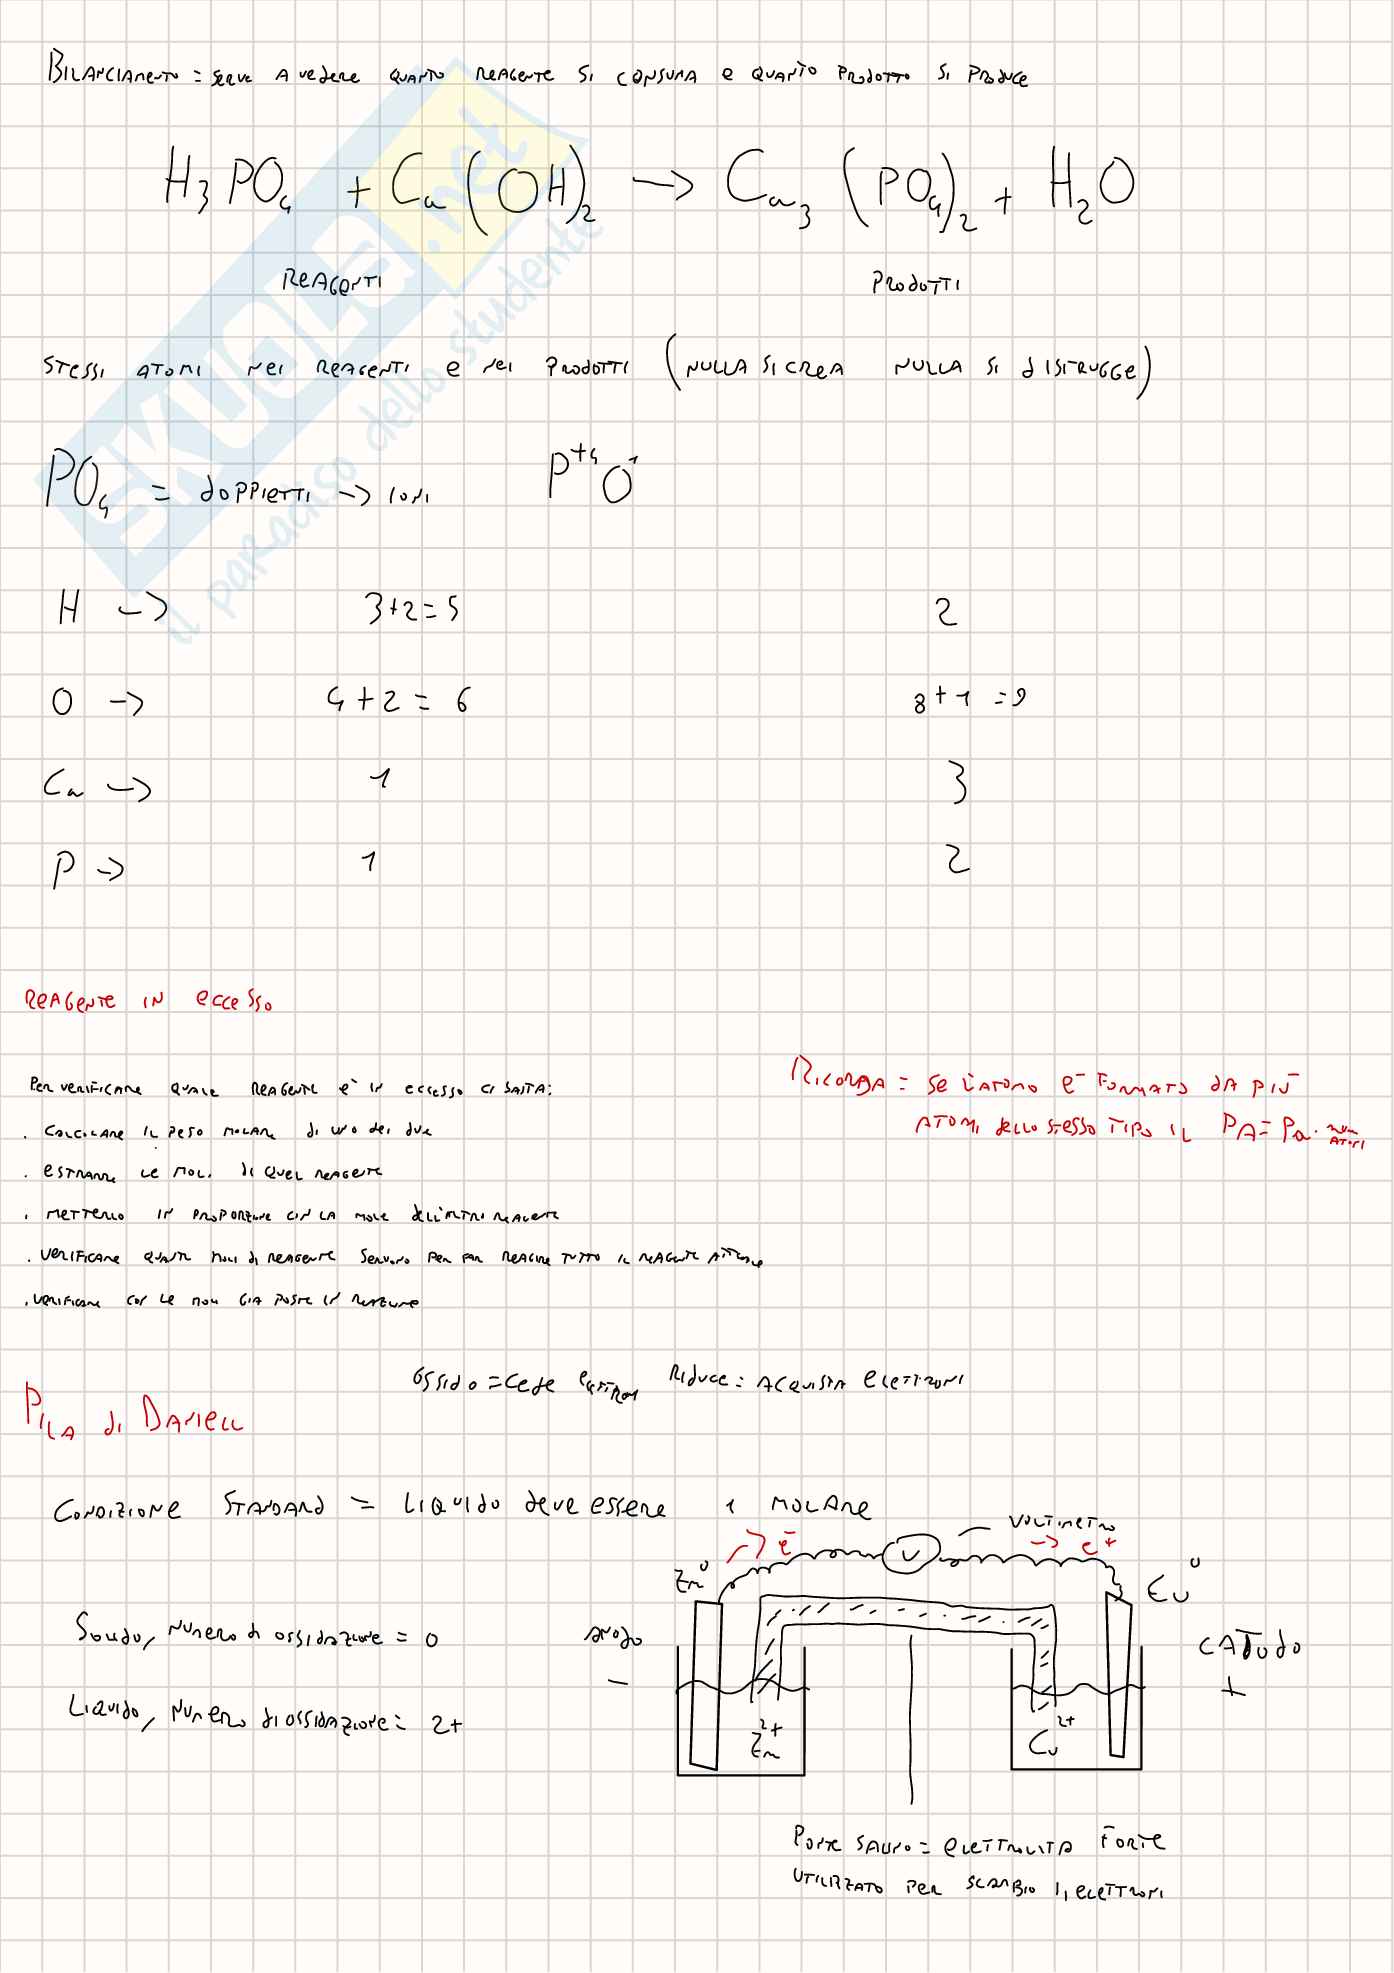 BILANCIAMENTO = SERVE A VEDERE QUANTO REAGENTE SI CONSUMA E QUANTO PRODOTTO SI PRODUCE
H₃PO₄ + Ca(OH)₂ → Ca₃(PO₄)₂ + H₂O
REAGENTI PRODOTTI
STESSI ATOMI NEI REAGENTI E NEI PRODOTTI (NULLA SI CREA NULLA SI DISTRUGGE)
PO₄ = DOPPIETTI → IONI P⁺⁴O¹
H → 3+2=5 2
O → 4+2=6 8+1=9
Ca → 1 3
P → 1 2
REAGENTE IN ECCESSO
PER VERIFICARE QUALE REAGENTE E' IN ECCESSO CI BASTA:
RICORDA = SE L'ATOMO E' FORMATO DA PIÙ
. CALCOLARE IL PESO MOLARE DI UNO DEI DUE
ATOMI DELLO STESSO TIPO IL PA = Pa · NUM ATOMI
. ESTRARRE LE MOLI DI QUEL REAGENTE
. METTERLO IN PROPORZIONE CON LA MOLE DELL'ALTRO REAGENTE
. VERIFICARE QUANTE MOLI DI REAGENTE SERVONO PER FAR REAGIRE TUTTO IL REAGENTE
. VERIFICARE CON LE MOLI GIA POSTE IN REAZIONE
OSSIDO = CEDE ELETTRONI RIDUCE = ACQUISTA ELETTRONI
PILA DI DANIELL
CONDIZIONE STANDARD = LIQUIDO DEVE ESSERE 1 MOLARE
VOLTIMETRO
→ e⁻ V → e⁺
Zn⁰ Cu⁰
SOLIDO, NUMERO DI OSSIDAZIONE = 0
ANODO CATODO
- +
LIQUIDO, NUMERO DI OSSIDAZIONE = 2+
Zn²⁺ Cu²⁺
PONTE SALINO = ELETTROLITA FORTE
UTILIZZATO PER SCAMBIO DI ELETTRONI
SKUOLA.net
il paradiso dello studente